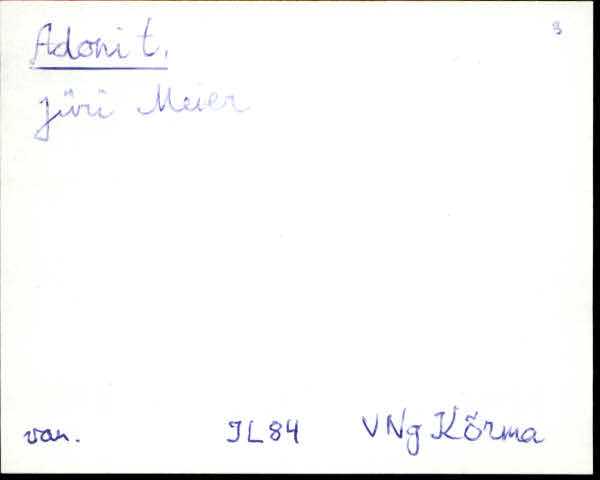 Adoni t.
Jüri Meier
van. JL84 VNg Kõrma